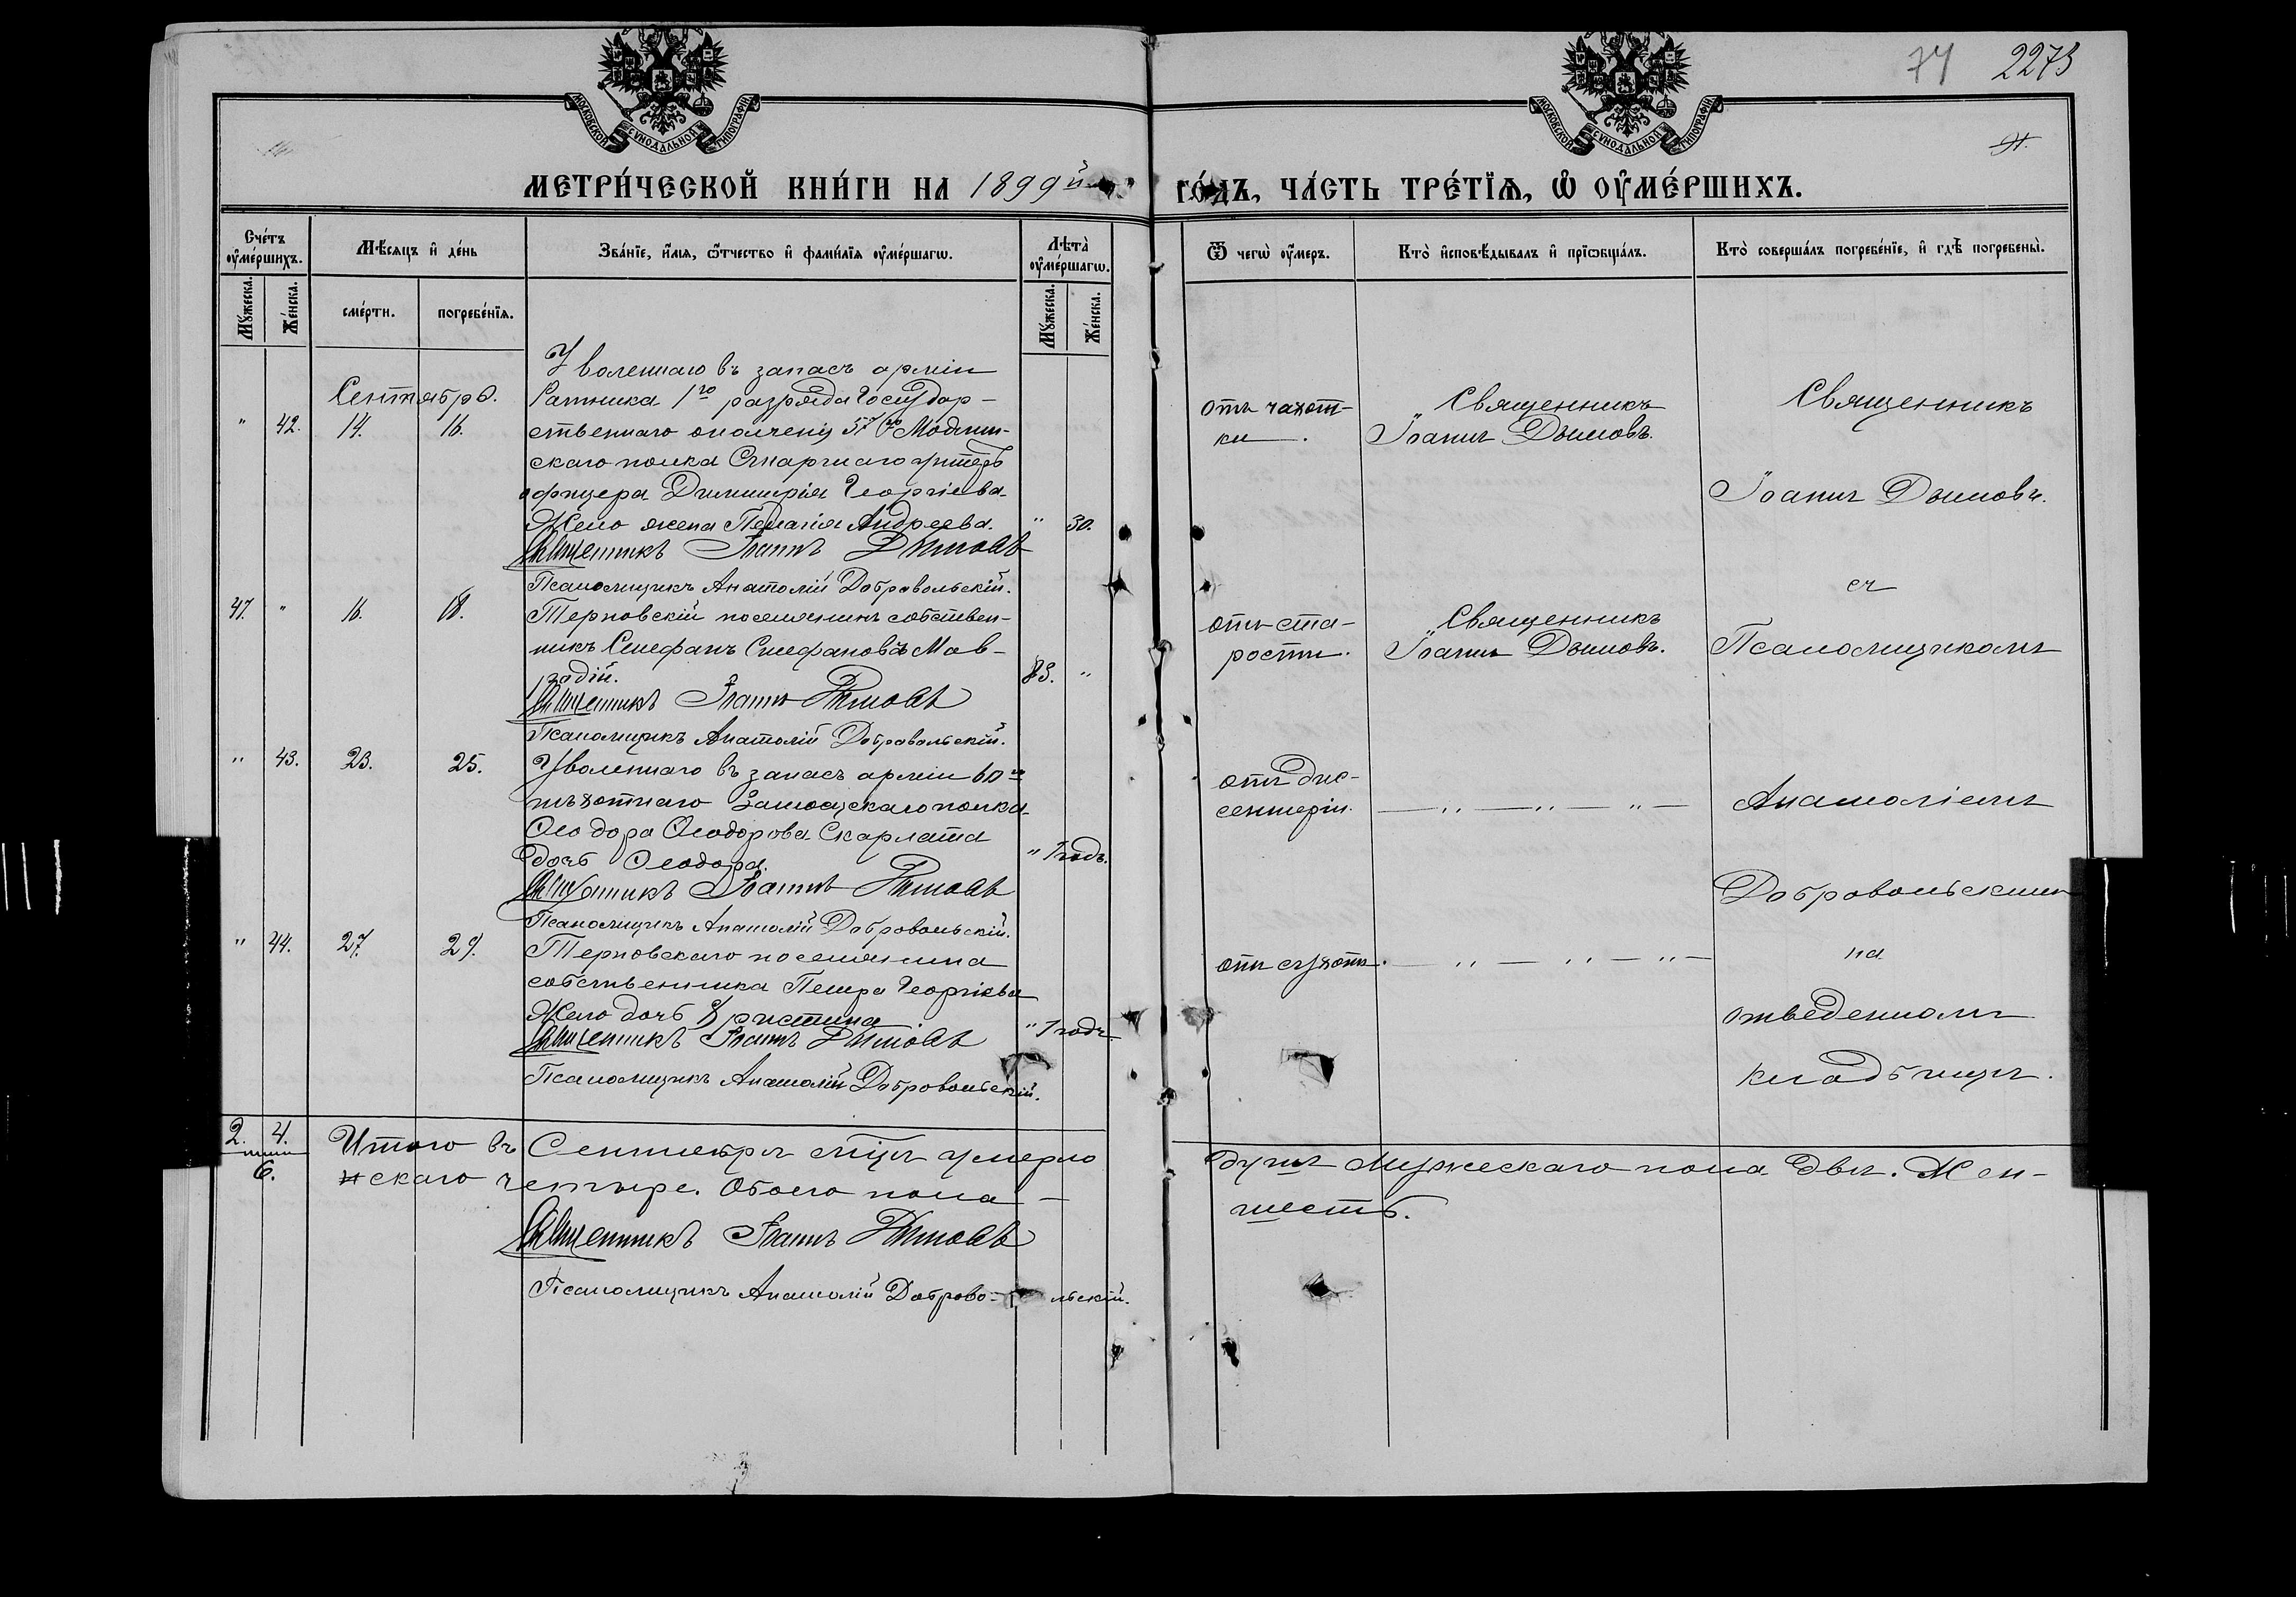 74 2273
МОСКОВСКОЙ СУНОДАЛЬНОЙ ТИПОГРАФІИ
МОСКОВСКОЙ СУНОДАЛЬНОЙ ТИПОГРАФІИ
МЕТРИ́ЧЕСКОЙ КНИ́ГИ НА 1899й
ГО́ДЪ, ЧА́СТЬ ТРЕ́ТЇѦ, Ѡ҆ ОУ҆МЕ́РШИХЪ.
Сче́тъ оу҆ме́ршихъ.
Мѣ́сяцъ и҆ де́нь
Зва́нїе, и҆́мѧ, ѻ҆́тчество и҆ фами́лїѧ оу҆ме́ршагѡ.
Лѣта̀ оу҆ме́ршагѡ.
Ѿ чегѡ̀ оу҆́меръ.
Кто̀ и҆сповѣ́дывалъ и҆ прїѡбща́лъ.
Кто̀ соверша́лъ погребе́нїе, и҆ гдѣ̀ погребены̀.
Му́жеска.
Же́нска.
сме́рти.
погребе́нїѧ.
Му́жеска.
Же́нска.
Сентябрь.
" 42. 14. 16.
Уволеннаго въ запасъ арміи
Ратника 1го разряда Государ-
ственнаго ополченія 57го Модлин-
скаго полка Старшаго унтеръ
офицера Димитрія Георгіева
Жело жена Пелагія Андреева. " 30.
Священникъ Іоаннъ Дымовъ
Псаломщикъ Анатолій Добровольскій.
отъ чахот-
ки.
Священникъ
Іоаннъ Дымовъ.
Священникъ
Іоаннъ Дымовъ.
съ
47. " 16. 18.
Терновскій поселянинъ собствен-
никъ Стефанъ Стефановъ Мав-
радій. 83. "
Священникъ Іоаннъ Дымовъ
Псаломщикъ Анатолій Добровольскій.
отъ ста-
рости.
Священникъ
Іоаннъ Дымовъ.
Псаломщикомъ
" 43. 23. 25.
Уволеннаго въ запасъ арміи 60го
пѣхотнаго Замосцскаго полка
Ѳеодора Ѳеодорова Скарлата
дочь Ѳеодора. " 1 годъ.
Священникъ Іоаннъ Дымовъ
Псаломщикъ Анатолій Добровольскій.
отъ дис-
сентеріи.
— " — " — " —
Анатоліемъ
Добровольскимъ
" 44. 27. 29.
Терновскаго поселянина
собственника Петра Георгіева
Жело дочь Христина " 1 годъ
Священникъ Іоаннъ Дымовъ
Псаломщикъ Анатолій Добровольскій.
отъ сухот. — " — " — " —
на
отведенномъ
кладбищѣ.
2. 4.
6.
Итого въ Сентябрѣ мѣцѣ умерло
душъ мужескаго пола двѣ. Жен-
скаго четыре. Обоего пола —
шесть.
Священникъ Іоаннъ Дымовъ
Псаломщикъ Анатолій Доброво-льскій.